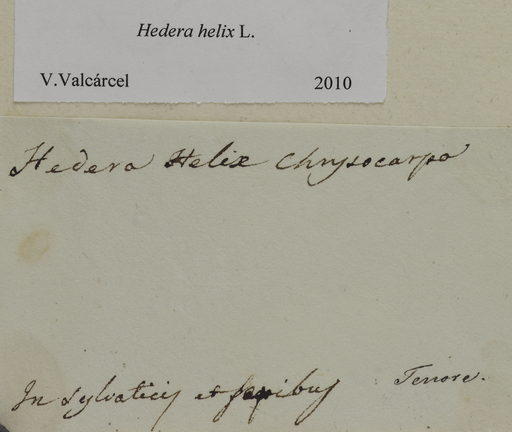 Hedera helix L.
V.Valcárcel 2010
Hedera Helix Chrysocarpa
In sylvaticis et sepibus Tenore.